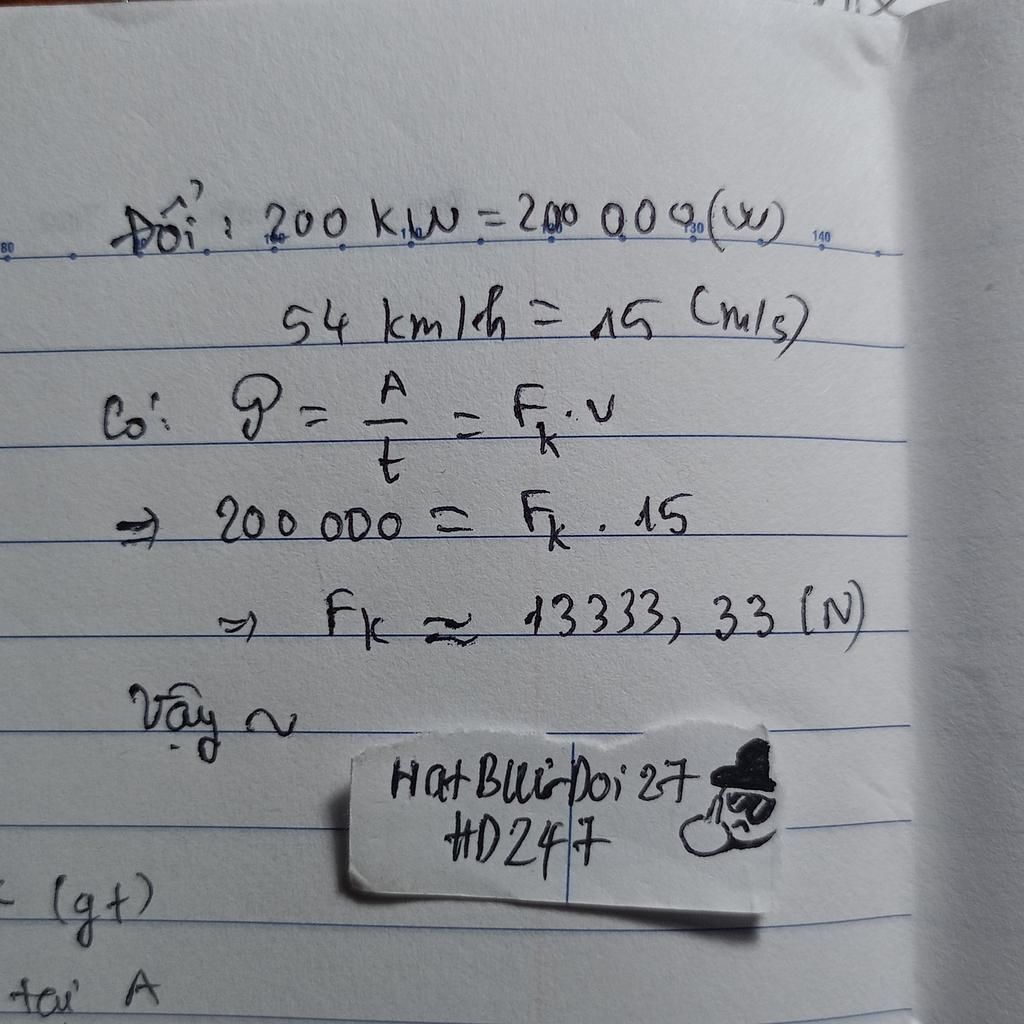 Đổi: 200 kW = 200 000 (W)
80 130 140
54 km/h = 15 (m/s)
Có: P = A/t = Fk . v
⇒ 200 000 = Fk . 15
⇒ Fk ≈ 13333, 33 (N)
Vậy ~
HatBuiDoi27
HD247
(gt)
tại A